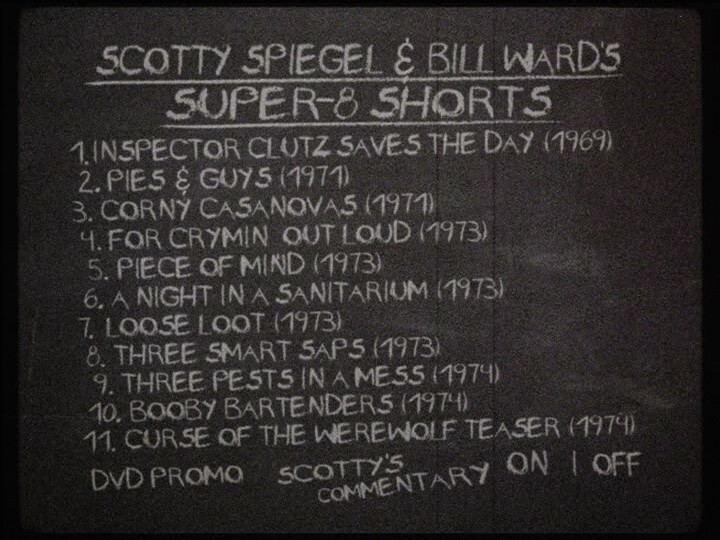 SCOTTY SPIEGEL & BILL WARD'S
SUPER-8 SHORTS
1. INSPECTOR CLUTZ SAVES THE DAY (1969)
2. PIES & GUYS (1971)
3. CORNY CASANOVAS (1971)
4. FOR CRYMIN OUT LOUD (1973)
5. PIECE OF MIND (1973)
6. A NIGHT IN A SANITARIUM (1973)
7. LOOSE LOOT (1973)
8. THREE SMART SAPS (1973)
9. THREE PESTS IN A MESS (1974)
10. BOOBY BARTENDERS (1974)
11. CURSE OF THE WEREWOLF TEASER (1974)
DVD PROMO SCOTTY'S COMMENTARY ON | OFF